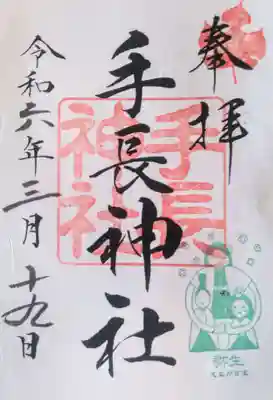 奉拝
手長神社
手長
神社
令和六年三月十九日
弥生